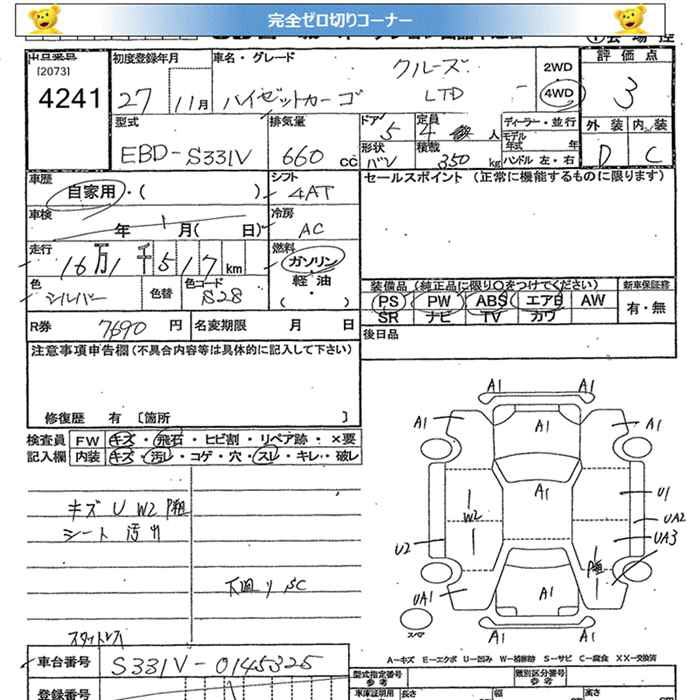 完全ゼロ切りコーナー
[2073]
4241
初度登録年月
27 11月
車名・グレード
クルーズ
ハイゼットカーゴ LTD
2WD
4WD
評価点
3
外装 内装
D C
型式
EBD-S331V
排気量
660 cc
ドア
5
定員
4 人
形状
バン
積載
350 kg
ディーラー・並行
モデル年式 年
ハンドル 左・右
車歴
自家用・( )
シフト
4AT
セールスポイント (正常に機能するものに限ります)
車検
年 月( 日)
冷房
AC
走行
16万1千517km
燃料
ガソリン・
軽油
( ・ )
色
シルバー
色替
色コード
S28
装備品(純正品に限り〇をつけてください)
新車保証書
PS PW ABS エアB AW
SR ナビ TV カワ
有・無
R券
7690円
名変期限 月 日
後日品
注意事項申告欄(不具合内容等は具体的に記入して下さい)
修復歴 有 [箇所 ]
検査員
記入欄
FW キズ・飛石・ヒビ割・リペア跡・×要
内装 キズ・汚レ・コゲ・穴・スレ・キレ・破レ
キズ U W2
シート 汚れ
下廻り SC
A1 A1
A1 A1 A1
A1
U1
W2
UA2
U2
UA3
UA1
A1
A1 A1
スペア
A-キズ E-エクボ U-凹み W-補修跡 S-サビ C-腐食 XX-交換済
車台番号
S331V-0145325
登録番号
型式指定番号
参考
類別区分番号
参考
車庫証明用
長さ
幅
高さ